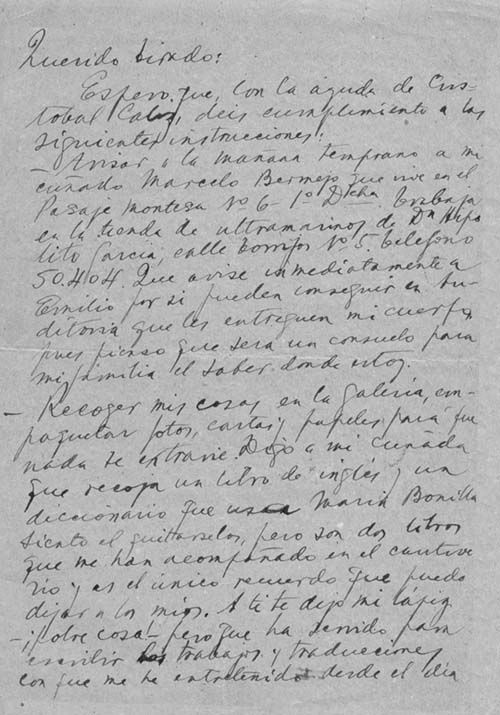 Querido Tirado:
Espero que, con la ayuda de Cris-
tobal Calos, deis cumplimiento a las
siguientes instrucciones:
- Avisar a la mañana temprano a mi
cuñado Marcelo Bermejo que vive en el
Pasaje Montesa Nº 6 - 1º Dcha. Trabaja
en la tienda de ultramarinos de Dn Hipo
lito Garcia, calle Torrijos Nº 5. Telefono
50.404. Que avise inmediatamente a
Emilio por si pueden conseguir en Au-
ditoria que les entreguen mi cuerpo,
pues pienso que será un consuelo para
mi familia el saber donde estoy.
- Recoger mis cosas en la Galería, em-
paquetar fotos, cartas y papeles para que
nada se extravie. Digo a mi cuñada
que recoja un libro de inglés y un
diccionario que usa Maria Bonilla
Siento el quitarselos, pero son dos libros
que me han acompañado en el cautive
rio y es el único recuerdo que puedo
dejar a los mios. A ti te dejo mi lápiz
- ¡pobre cosa! - pero que ha servido para
escribir los trabajos y traducciones
con que me he entretenido desde el dia